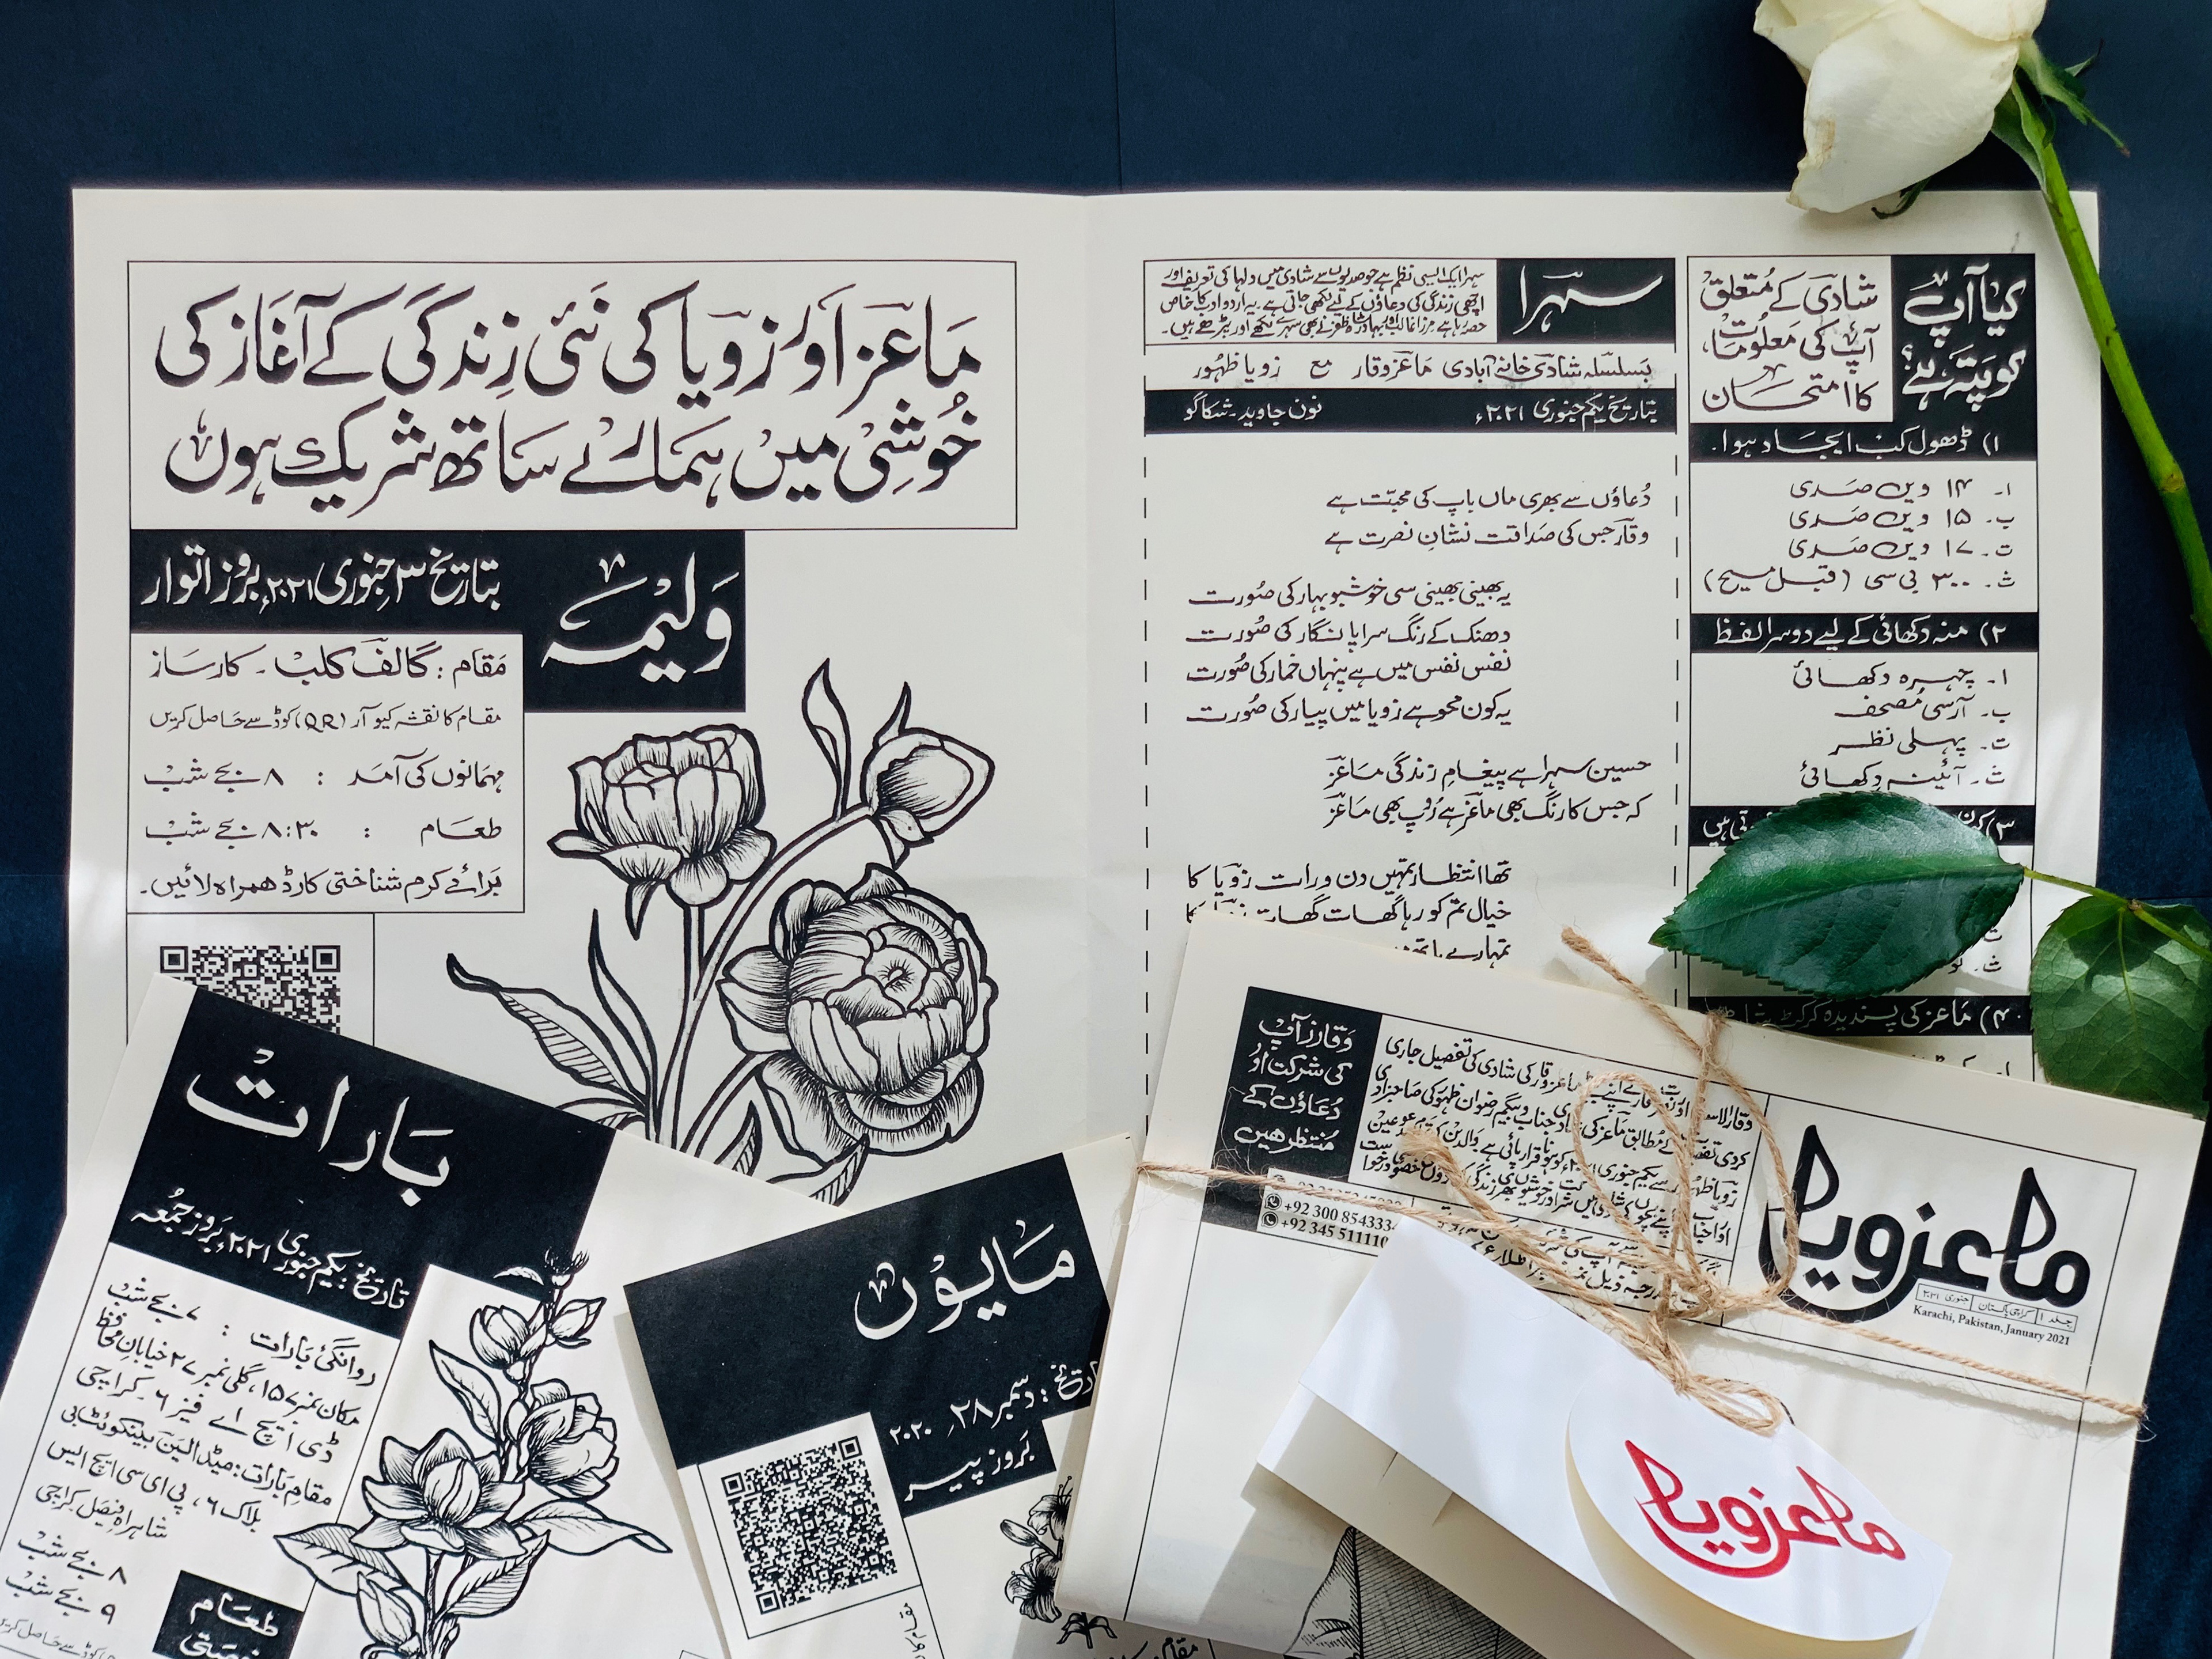 ماعز اور زویا کی نئی زندگی کے آغاز کی
خوشی میں ہمارے ساتھ شریک ہوں
ولیمہ
بتاریخ ۳ جنوری ۲۰۲۱ء بروز اتوار
مقام : گالف کلب - کارساز
مقام کا نقشہ کیو آر (QR) کوڈ سے حاصل کریں
مہمانوں کی آمد : ۸ بجے شب
طعام : ۸:۳۰ بجے شب
برائے کرم شناختی کارڈ ہمراہ لائیں۔
سہرا
سہرا ایک ایسی نظم ہے جو صدیوں سے شادی میں دلہا کی تعریف اور
اچھی زندگی کی دعاؤں کے لیے لکھی جاتی ہے۔ یہ اردو ادب کا خاص
حصہ رہا ہے مرزا غالب اور بہادر شاہ ظفر نے بھی سہرے لکھے اور پڑھے ہیں۔
بسلسلہ شادی خانہ آبادی ماعز وقار مع زویا ظہور
بتاریخ یکم جنوری ۲۰۲۱ء نون جاوید - شکاگو
دعاؤں سے بھری ماں باپ کی محبت ہے
وقار جس کی صداقت نشانِ نصرت ہے
یہ بھینی بھینی سی خوشبو بہار کی صورت
دھنک کے رنگ سراپا نگار کی صورت
نفس نفس میں ہے پنہاں خمار کی صورت
یہ کون محو ہے زویا میں پیار کی صورت
حسین سہرا ہے پیغامِ زندگی ماعز
کہ جس کا رنگ بھی ماعز ہے رُوپ بھی ماعز
تھا انتظار تمہیں دن و رات زویا کا
خیال تم کو رہا گھات گھات
تمہارے
کیا آپ
کو پتہ ہے؟
شادی کے مُتعلق
آپ کی معلومات
کا امتحان
۱) ڈھول کب ایجاد ہوا۔
ا۔ ۱۴ ویں صدی
ب۔ ۱۵ ویں صدی
ت۔ ۱۷ ویں صدی
ث۔ ۳۰۰ بی سی (قبل مسیح)
۲) منہ دکھائی کے لیے دوسرا لفظ
ا۔ چہرہ دکھائی
ب۔ آرسی مُصحف
ت۔ پہلی نظر
ث۔ آئینہ دکھائی
۳)
ت۔
ث۔
۴) ماعز کی پسندیدہ کرکٹ
بارات
تاریخ : یکم جنوری ۲۰۲۱ء بروز جُمعہ
روانگیٔ بارات : ۷ بجے شب
مکان نمبر ۱۵۷، گلی نمبر ۲۷ خیابانِ محافظ
ڈی ایچ اے فیز ۶ - کراچی
مقامِ بارات : میڈالین بینکوئٹ
بلاک ۶، پی ای سی ایچ ایس
شاہراہِ فیصل کراچی
۸ بجے شب
۹ بجے شب
کوڈ سے حاصل کریں
طعام
رخصتی
مایوں
تاریخ : دسمبر ۲۸، ۲۰۲۰
بروز پیر
مقام
وقارز آپ
کی شرکت اور
دُعاؤں کے
مُنتظر ہیں
ماعز وقار کی شادی کی تفصیل جاری
+92 300 8543334
+92 345 511110
ماعزویا
جلد ۱ کراچی پاکستان جنوری ۲۰۲۱
Karachi, Pakistan, January 2021
ماعزویا